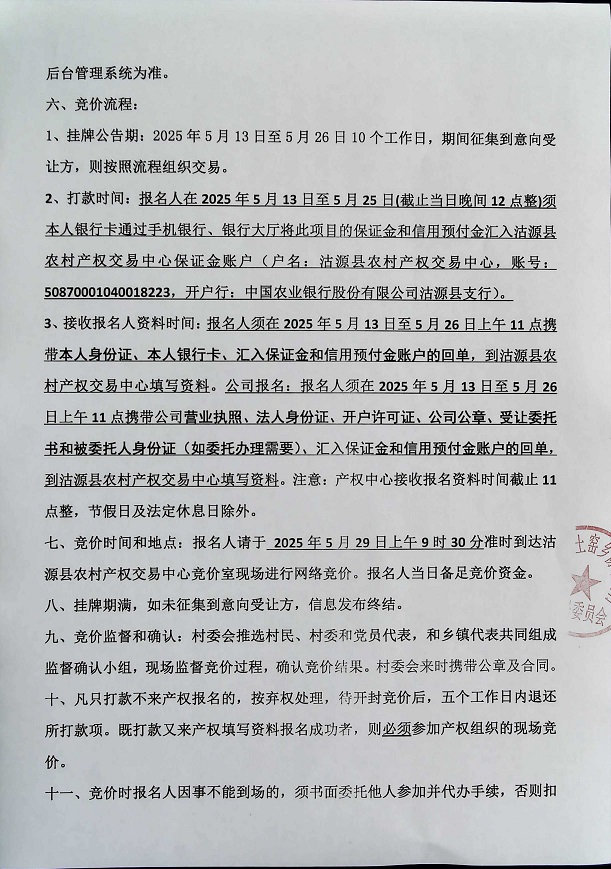 后台管理系统为准。
六、竞价流程：
1、挂牌公告期：2025年5月13日至5月26日10个工作日，期间征集到意向受
让方，则按照流程组织交易。
2、打款时间：报名人在2025年5月13日至5月25日(截止当日晚间12点整)须
本人银行卡通过手机银行、银行大厅将此项目的保证金和信用预付金汇入沽源县
农村产权交易中心保证金账户（户名：沽源县农村产权交易中心，账号：
50870001040018223，开户行：中国农业银行股份有限公司沽源县支行）。
3、接收报名人资料时间：报名人须在2025年5月13日至5月26日上午11点携
带本人身份证、本人银行卡、汇入保证金和信用预付金账户的回单，到沽源县农
村产权交易中心填写资料。公司报名：报名人须在2025年5月13日至5月26
日上午11点携带公司营业执照、法人身份证、开户许可证、公司公章、受让委托
书和被委托人身份证（如委托办理需要）、汇入保证金和信用预付金账户的回单，
到沽源县农村产权交易中心填写资料。注意：产权中心接收报名资料时间截止11
点整，节假日及法定休息日除外。
七、竞价时间和地点：报名人请于 2025年5月29日上午9时30分准时到达沽
源县农村产权交易中心竞价室现场进行网络竞价。报名人当日备足竞价资金。
八、挂牌期满，如未征集到意向受让方，信息发布终结。
九、竞价监督和确认：村委会推选村民、村委和党员代表，和乡镇代表共同组成
监督确认小组，现场监督竞价过程，确认竞价结果。村委会来时携带公章及合同。
十、凡只打款不来产权报名的，按弃权处理，待开封竞价后，五个工作日内退还
所打款项。既打款又来产权填写资料报名成功者，则必须参加产权组织的现场竞
价。
十一、竞价时报名人因事不能到场的，须书面委托他人参加并代办手续，否则扣
土窑乡
委员会